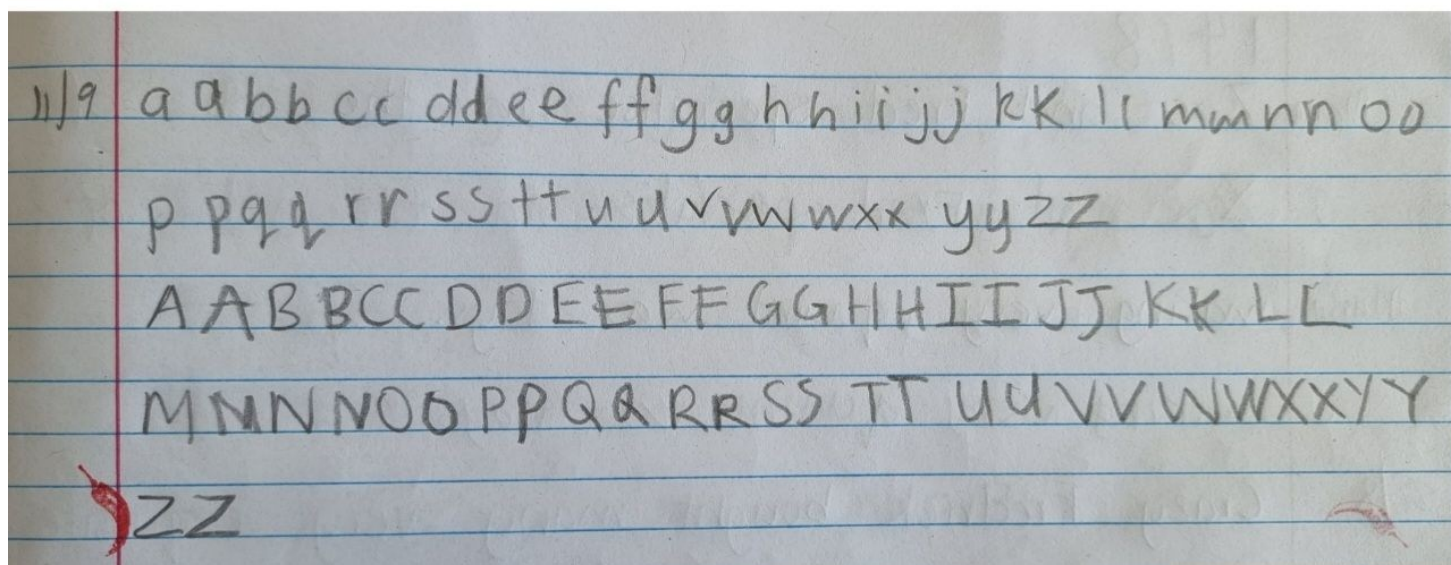 11/9 a a b b c c d d e e f f g g h h i i j j k K l l m m n n o o
p p q q r r s s t t u u v v w w x x y y z z
A A B B C C D D E E F F G G H H I I J J K K L L
M M N N O O P P Q Q R R S S T T U U V V W W X X Y Y
Z Z